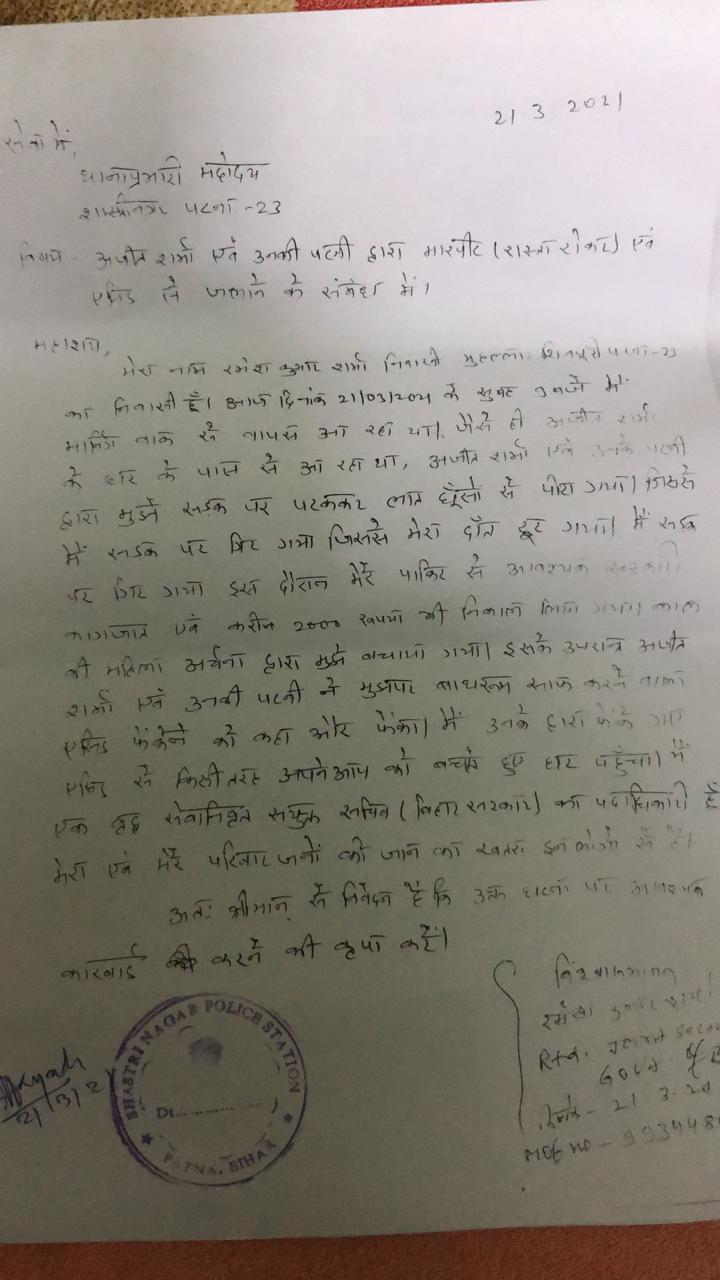 21.3 2021
सेवा में,
थानाप्रभारी महोदय
शास्त्रीनगर पटना -23
विषय- अजीत शर्मा एवं उनकी पत्नी द्वारा मारपीट (रास्ता रोकर) एवं
एसिड से जलाने के संबंध में।
महाशय,
मेरा नाम रमेश कुमार शर्मा निवासी मुहल्ला शिवपुरी पटना-23
का निवासी हूँ। आज दिनांक 21/03/2021 के सुबह 7 बजे मैं
मार्निंग वाक से वापस आ रहा था। जैसे ही अजीत शर्मा
के घर के पास से आ रहा था, अजीत शर्मा एवं उनके पत्नी
द्वारा मुझे सड़क पर पटककर लात घूँसों से पीटा गया। जिससे
मैं सड़क पर गिर गया जिससे मेरा दाँत टूट गया। मैं सड़क
पर गिर गया इस दौरान मेरे पाकिट से आवश्यक सरकारी
कागजात एवं करीब 2000 रुपया भी निकाल लिया गया। बगल
की महिला अर्चना द्वारा मुझे बचाया गया। इसके उपरान्त अजीत
शर्मा एवं उनकी पत्नी ने मुझपर बाथरूम साफ करने वाला
एसिड फेंकने को कहा और फेंका। मैं उनके द्वारा फेंके गए
एसिड से किसी तरह अपने आप को बचाते हुए घर पहुँचा। मैं
एक वृद्ध सेवानिवृत संयुक्त सचिव (बिहार सरकार) का पदाधिकारी हूँ
मेरा एवं मेरे परिवार जनों की जान का खतरा इन लोगों से है।
अतः श्रीमान् से निवेदन है कि उक्त घटना पर आवश्यक
कारवाई करने की कृपा करें।
विश्वासभाजन
रमेश कुमार शर्मा
Rtd.
Govt of
दिनांक- 21 3.20
Mob no - 993448
21/3/21
SHASTRI NAGAR POLICE STATION
Dt.
PATNA, BIHAR